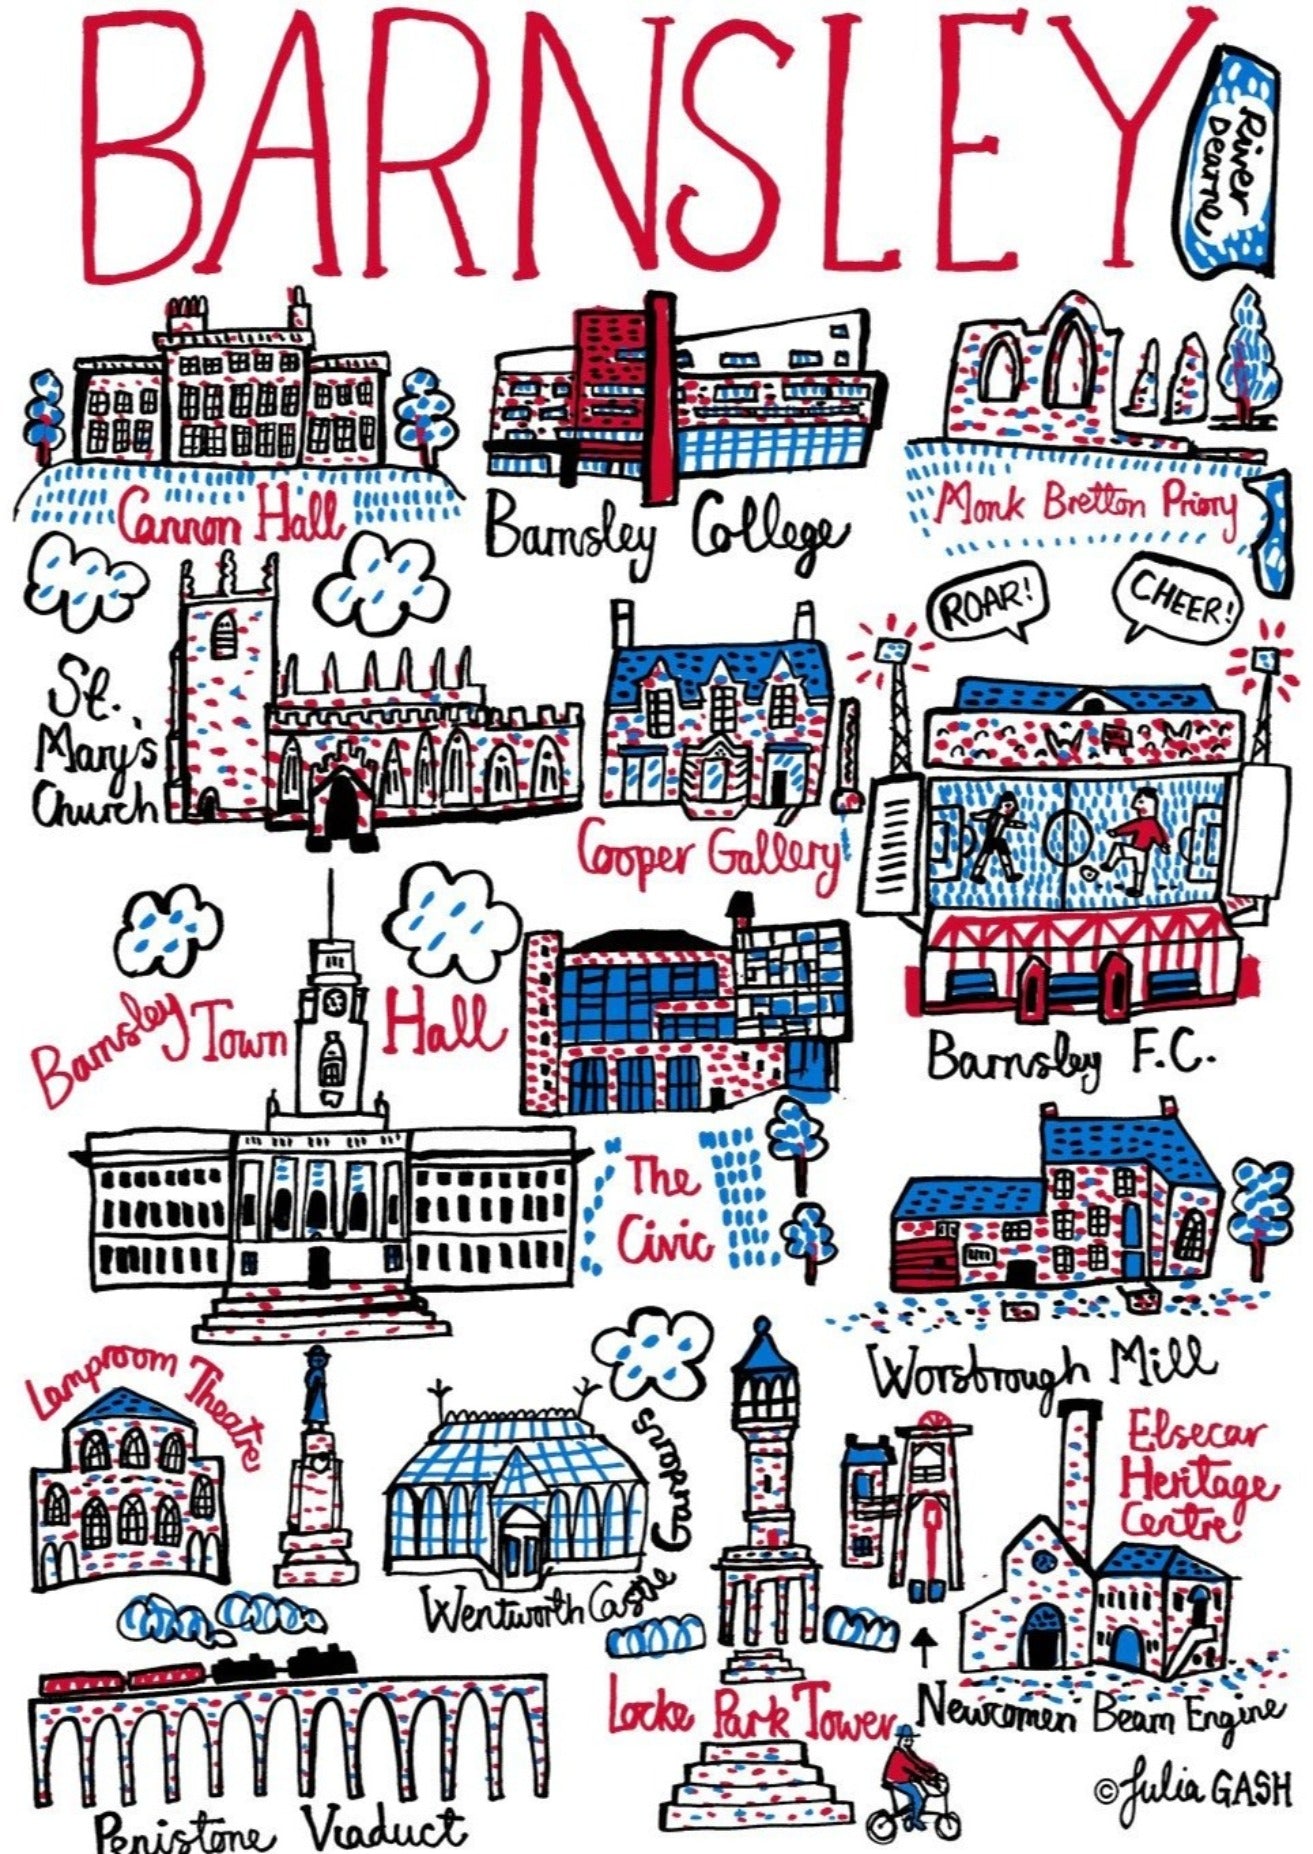 BARNSLEY
River
Dearne
Cannon Hall
Barnsley College
Monk Bretton Priory
ROAR!
CHEER!
St.
Mary's
Church
Cooper Gallery
Barnsley Town Hall
Barnsley F.C.
The
Civic
Worsbrough Mill
Lamproom Theatre
Wentworth Castle Gardens
Elsecar
Heritage
Centre
Locke Park Tower
Newcomen Beam Engine
Penistone Viaduct
© Julia GASH